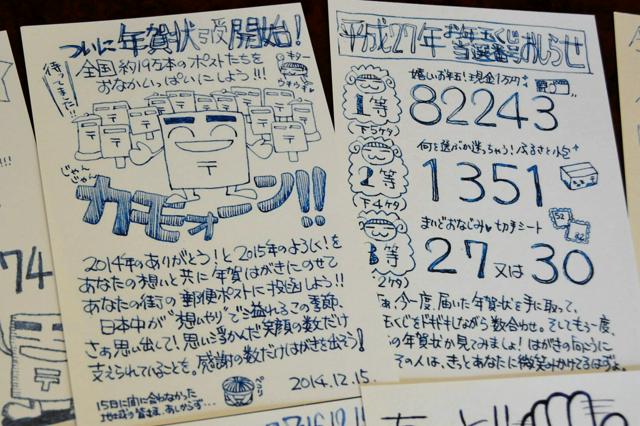 ついに年賀状引受開始!
待ってました!!
全国約19万本のポストたちを
おなかいっぱいにしよう!!!
〒
じゃんじゃん
カモォーン!!
2014年のありがとう!と2015年のよろしく!を
あなたの想いと共に年賀はがきにのせて
あなたの街の郵便ポストに投函しよう!!
日本中が"想いやり"で溢れるこの季節、
さぁ思い出して!思い浮かんだ笑顔の数だけ
支えられていることを。感謝の数だけはがきを出そう!
2014.12.15.
15日に間に合わなかった
地域の皆さま、あしからず…
ペコリ
平成27年お年玉くじ当選番号おしらせ
1等
嬉しいお年玉!現金1万円
82243
下5ケタ
2等
何を選ぶか迷っちゃう!ふるさと小包
1351
下4ケタ
3等
まいどおなじみ切手シート
52
82
27又は30
下2ケタ
さぁ、今一度、届いた年賀状を手に取って、
玉くじをドキドキしながら数合わせ。そしてもう一度、
の年賀状から見てみましょ!はがきの向こうに
その人は、きっとあなたに微笑みかけてるはずよ。
74